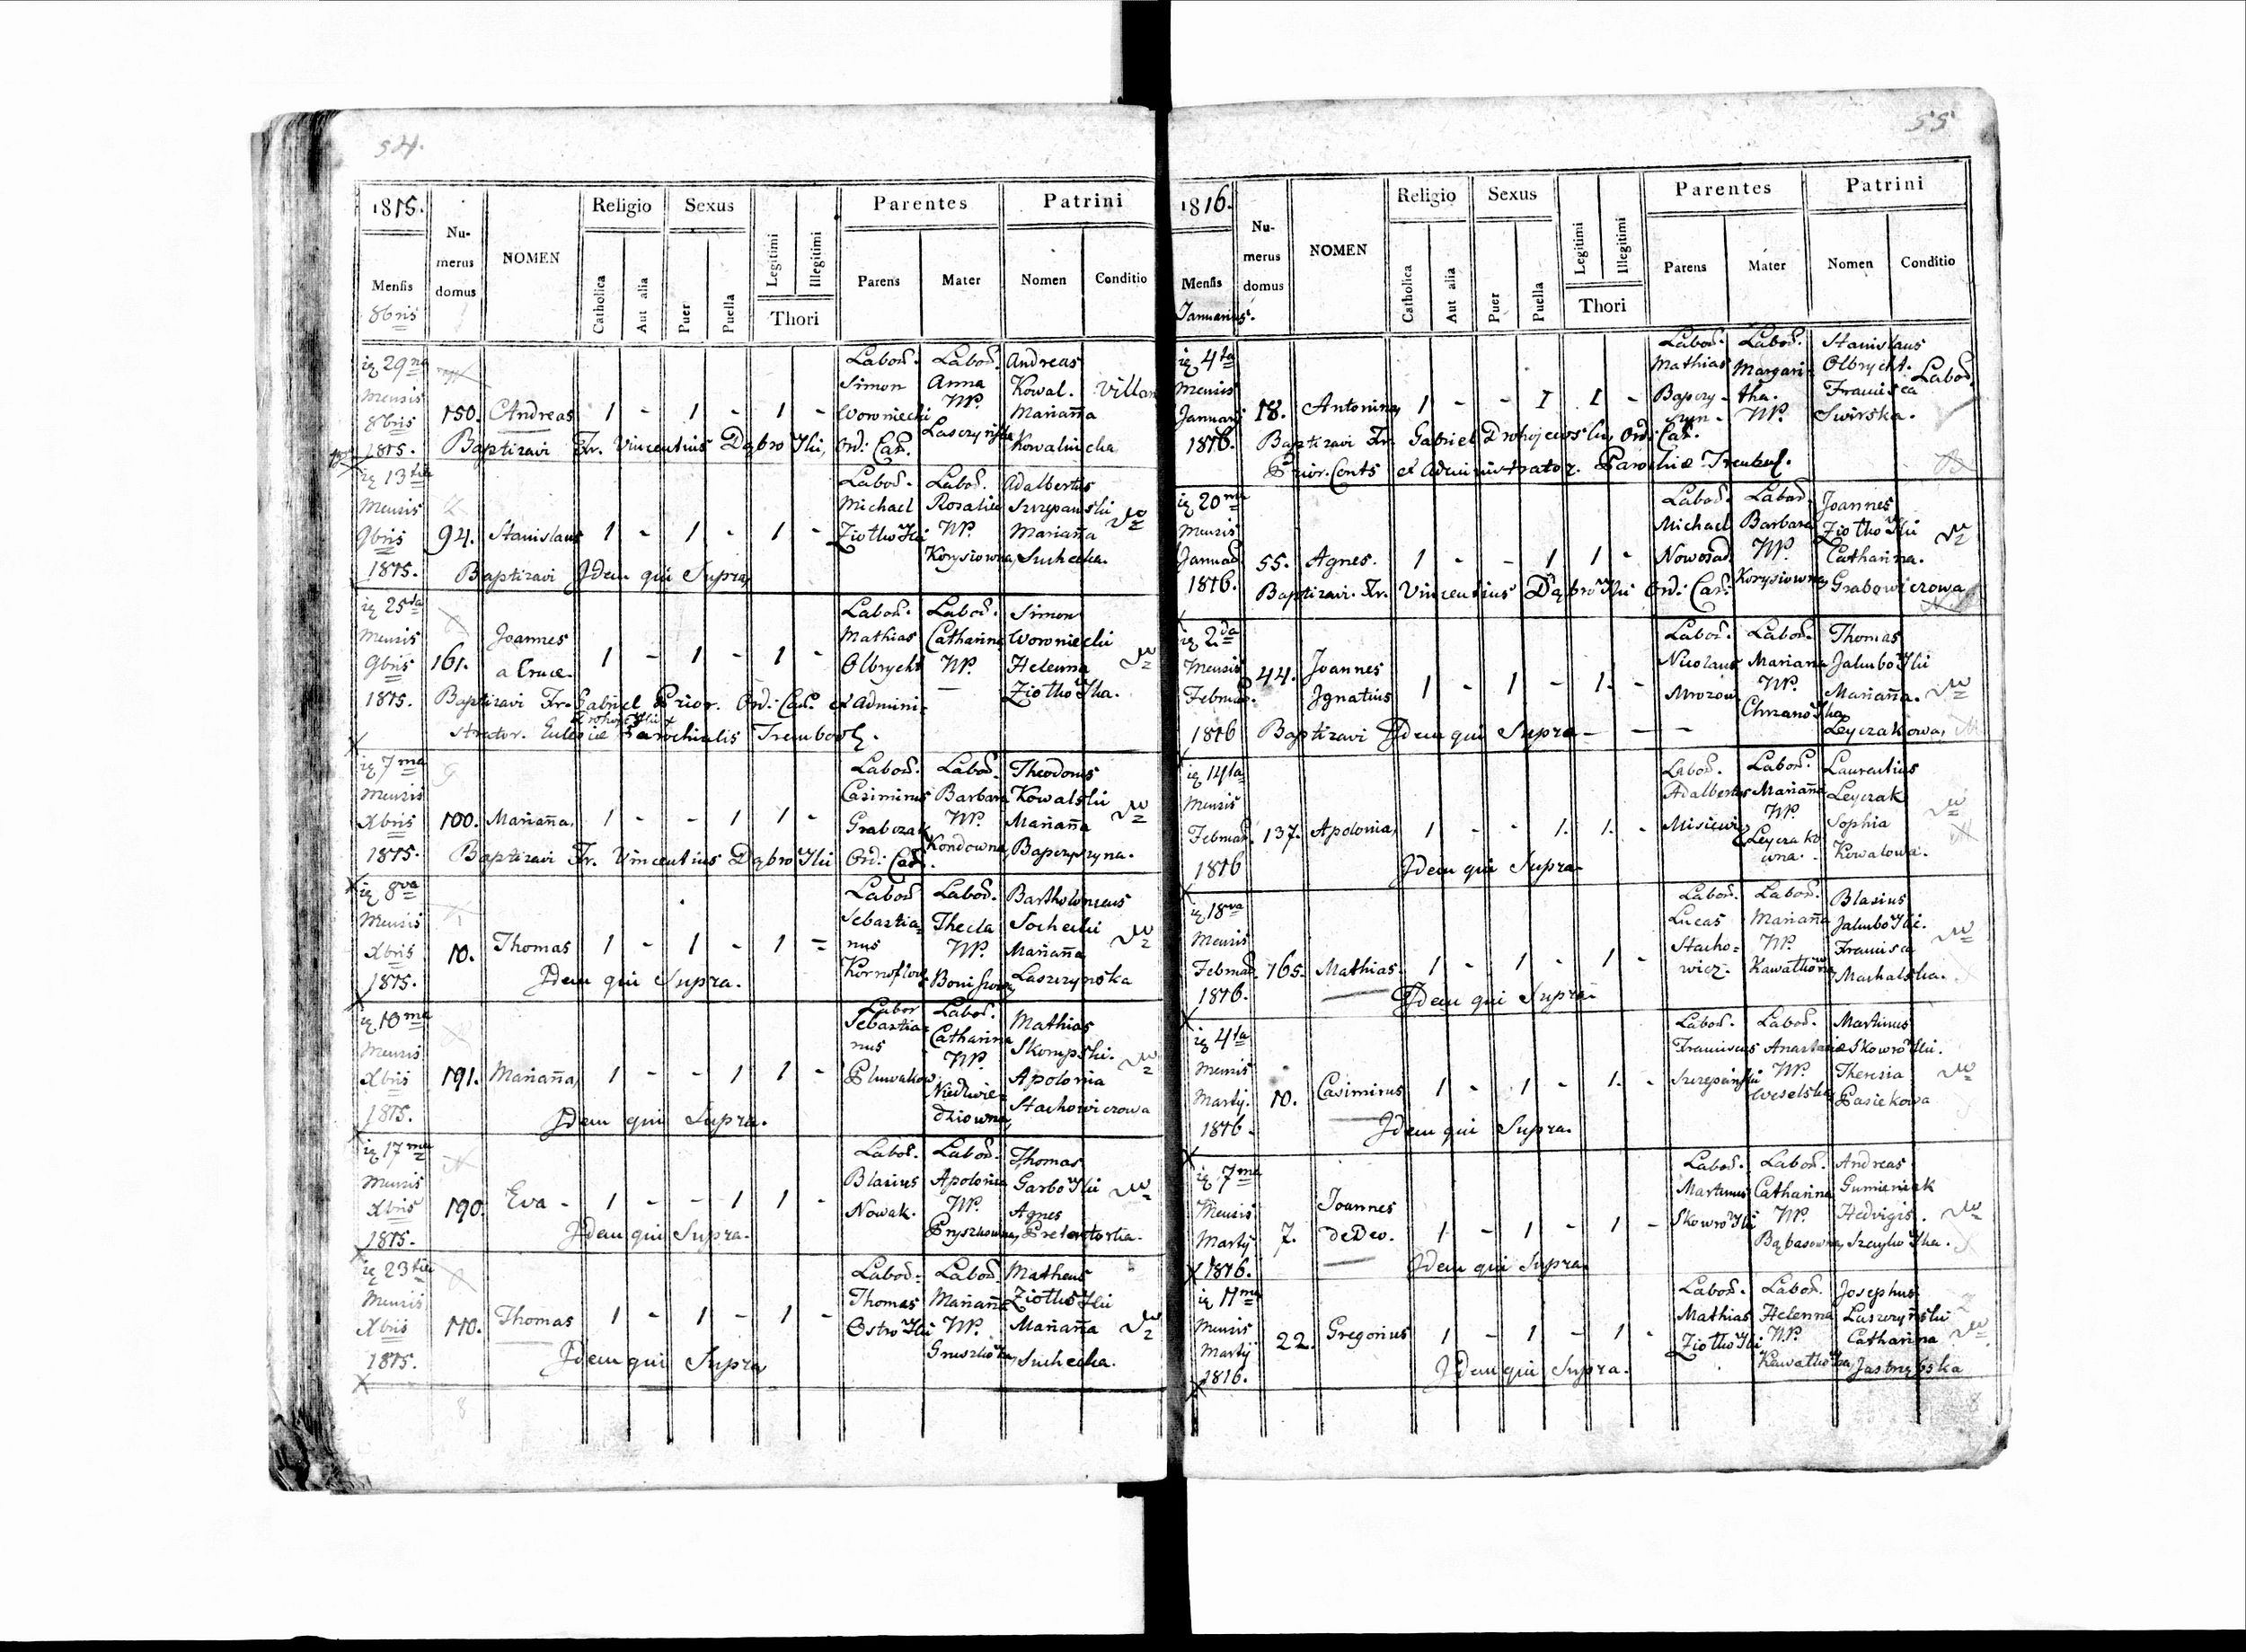 54.
1815.
Mensis
8bris
Nu-
merus
domus
NOMEN
Religio
Catholica
Aut alia
Sexus
Puer
Puella
Legitimi
Illegitimi
Thori
Parentes
Parens
Mater
Patrini
Nomen
Conditio
29na Mensis 8bris 1815.
150. Andreas 1 - 1 - 1 -
Labor. Simon Woroniecki
Labor. Anna NP.
Andreas Kowal. Marianna Kowaliucha
Baptizavi Fr. Vincentius Dąbrowski, Ord: Car.
13tia Mensis 9bris 1815.
94. Stanislaus 1 - 1 - 1 -
Labor. Michael Ziołkowski
Labor. Rosalia NP. Korysiowna
Adalbertus Szczepanski Marianna Suchecka.
Baptizavi Idem qui Supra
25ta Mensis 9bris 1815.
161. Joannes a Cruce. 1 - 1 - 1 -
Labor. Mathias Olbrycht
Labor. Catharina NP. —
Simon Woroniecki Helenna Ziołkowska.
Baptizavi Fr. Gabriel Prior. Ord: Car. et Admini-
strator. Ecclesiæ Parochialis Trembowl.
7ma Mensis Xbris 1815.
100. Marianna, 1 - - 1 1 -
Labor. Casimirus Grabczak
Labor. Barbara NP. Kondowna
Theodorus Kowalski Marianna
Baptizavi Fr. Vincentius Dąbrowski Ord: Car.
8va Mensis Xbris 1815.
10. Thomas 1 - 1 - 1 -
Labor. Sebastia-
nus
Labor. Thecla NP.
Bartholomeus Sochecki Marianna Laszczynska
Idem qui Supra.
10ma Mensis Xbris 1815.
191. Marianna, 1 - - 1 1 -
Labor Sebastia-
nus
Labor. Catharina NP. Niedzwie-
dziowna,
Mathias Skompski. Apolonia Stachowiczowa
Idem qui Supra.
17ma Mensis Xbris 1815.
190. Eva - 1 - - 1 1 -
Labor. Blasius Nowak.
Labor. Apolonia NP.
Thomas Garbowski Agnes
Idem qui Supra.
23tia Mensis Xbris 1815.
110. Thomas 1 - 1 - 1 -
Labor. Thomas Ostrowski
Labor. Marianna NP.
Matheus Ziołkowski Marianna Suchecka.
Idem qui Supra
55
1816.
Mensis
Januarius.
Nu-
merus
domus
NOMEN
Religio
Catholica
Aut alia
Sexus
Puer
Puella
Legitimi
Illegitimi
Thori
Parentes
Parens
Mater
Patrini
Nomen
Conditio
4ta Mensis Januarij 1816.
18. Antonina, 1 - - 1 1 -
Labor. Mathias
Labor. Margari-
tha. NP.
Stanislaus Olbrycht. Francisca Swirska.
Labor.
Baptizavi Fr. Gabriel Drohojewski, Ord: Car.
Prior. Conts et Administrator. Parochiæ Trembowl.
20ma Mensis Januar. 1816.
55. Agnes. 1 - - 1 1 -
Labor. Michael Nowosad
Labor. Barbara NP. Korysiowna
Joannes Ziołkowski Catharina. Grabowiczowa
Baptizavi. Fr. Vincentius Dąbrowski Ord: Car:
2da Mensis Februar. 1816
44. Joannes Ignatius 1 - 1 - 1. -
Labor. Nicolaus Mrozow
Labor. Mariana NP. Chrzanowska
Thomas Jakubowski Marianna. Leyczakowa,
Baptizavi Idem qui Supra — — —
14ta Mensis Februar. 1816
137. Apolonia, 1 - - 1. 1. -
Labor. Adalbertus Misiewicz
Labor. Marianna NP. Leyczako-
wna.
Laurentius Leyczak Sophia Kowalowa.
Idem qui Supra
18va Mensis Februar. 1816.
165. Mathias. 1 - 1 - 1 -
Labor. Lucas Stacho-
wicz.
Labor. Marianna NP.
Blasius Jakubowski. Francisca Machalska.
Idem qui Supra
4ta Mensis Martij. 1816.
10. Casimirus 1 - 1 - 1. -
Labor. Franciscus Szczepański
Labor. Anastasia NP. Weselska
Martinus Skowroński. Theresia Pasiekowa
Idem qui Supra.
7ma Mensis Martij 1816.
7. Joannes de Deo. 1 - 1 - 1 -
Labor. Martinus Skowroński
Labor. Catharina NP.
Andreas Gumieniak Hedvigis.
Idem qui Supra
11ma Mensis Martij 1816.
22. Gregorius 1 - 1 - 1 -
Labor. Mathias Ziołkowski
Labor. Helenna NP.
Josephus Laszczyński Catharina Jastrzębska
Idem qui Supra.